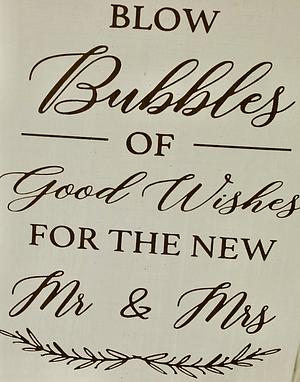 BLOW
Bubbles
OF
Good Wishes
FOR THE NEW
Mr & Mrs